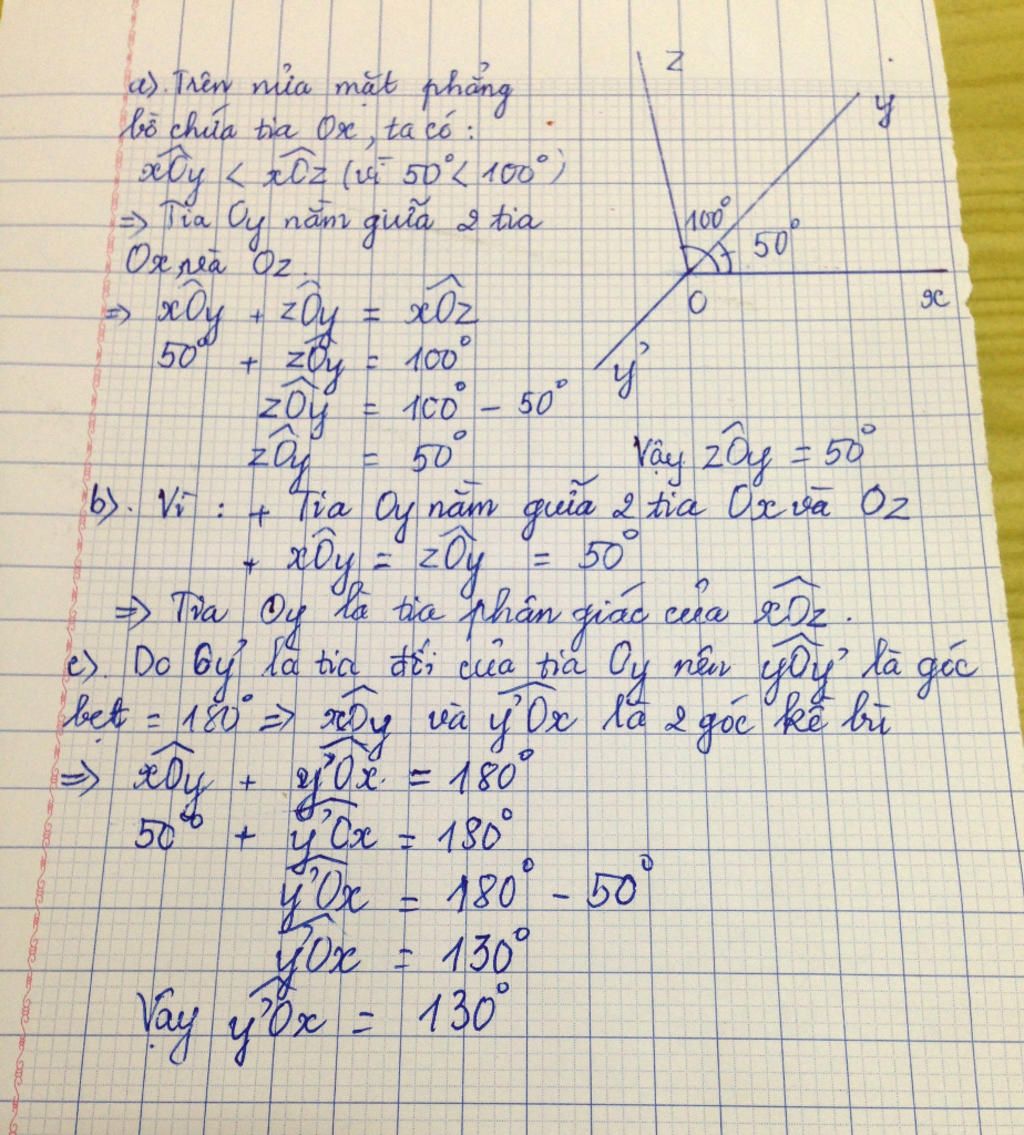 a). Trên nửa mặt phẳng
bờ chứa tia Ox, ta có:
xÔy < xÔz (vì 50° < 100°)
=> Tia Oy nằm giữa 2 tia
Ox và Oz.
=> xÔy + zÔy = xÔz
50° + zÔy = 100°
zÔy = 100° - 50°
zÔy = 50°
Vậy zÔy = 50°
z
y
100°
50°
O
x
y'
b). Vì: + Tia Oy nằm giữa 2 tia Ox và Oz
+ xÔy = zÔy = 50°
=> Tia Oy là tia phân giác của xÔz.
c). Do Oy' là tia đối của tia Oy nên yÔy' là góc
bẹt = 180° => xÔy và y'Ôx là 2 góc kề bù
=> xÔy + y'Ôx = 180°
50° + y'Ôx = 180°
y'Ôx = 180° - 50°
y'Ôx = 130°
Vậy y'Ôx = 130°